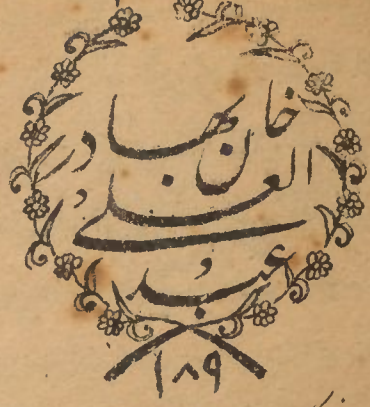 خان بهادر
العلی
عبد
۱۸۹